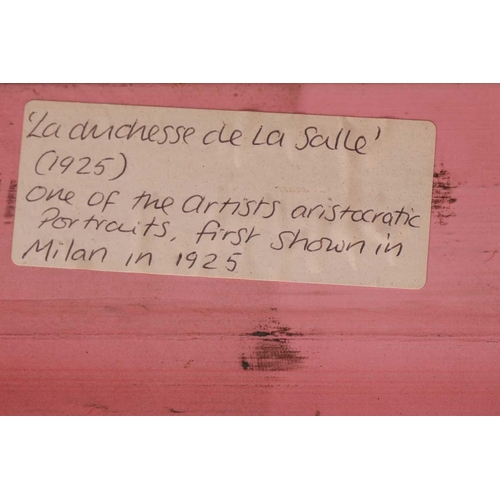 'La duchesse de La Salle'
(1925)
One of the Artists aristocratic
Portraits, first shown in
Milan in 1925